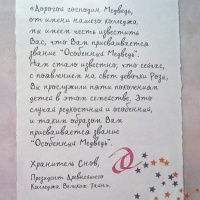 «Дорогой господин Медведь,
от имени нашего колледжа
мы имеем честь известить
Вас, что Вам присваивается
звание "Особенный Медведь".
Нам стало известно, что сейчас,
с появлением на свет девочки Рози,
Вы прослужили пяти поколениям
детей в этом семействе. Это
случай редкостный и особенный,
и таким образом Вам
присваивается звание
"Особенный Медведь".
Хранитель Снов,
Президент Древнейшего
Колледжа Великих Тайн».